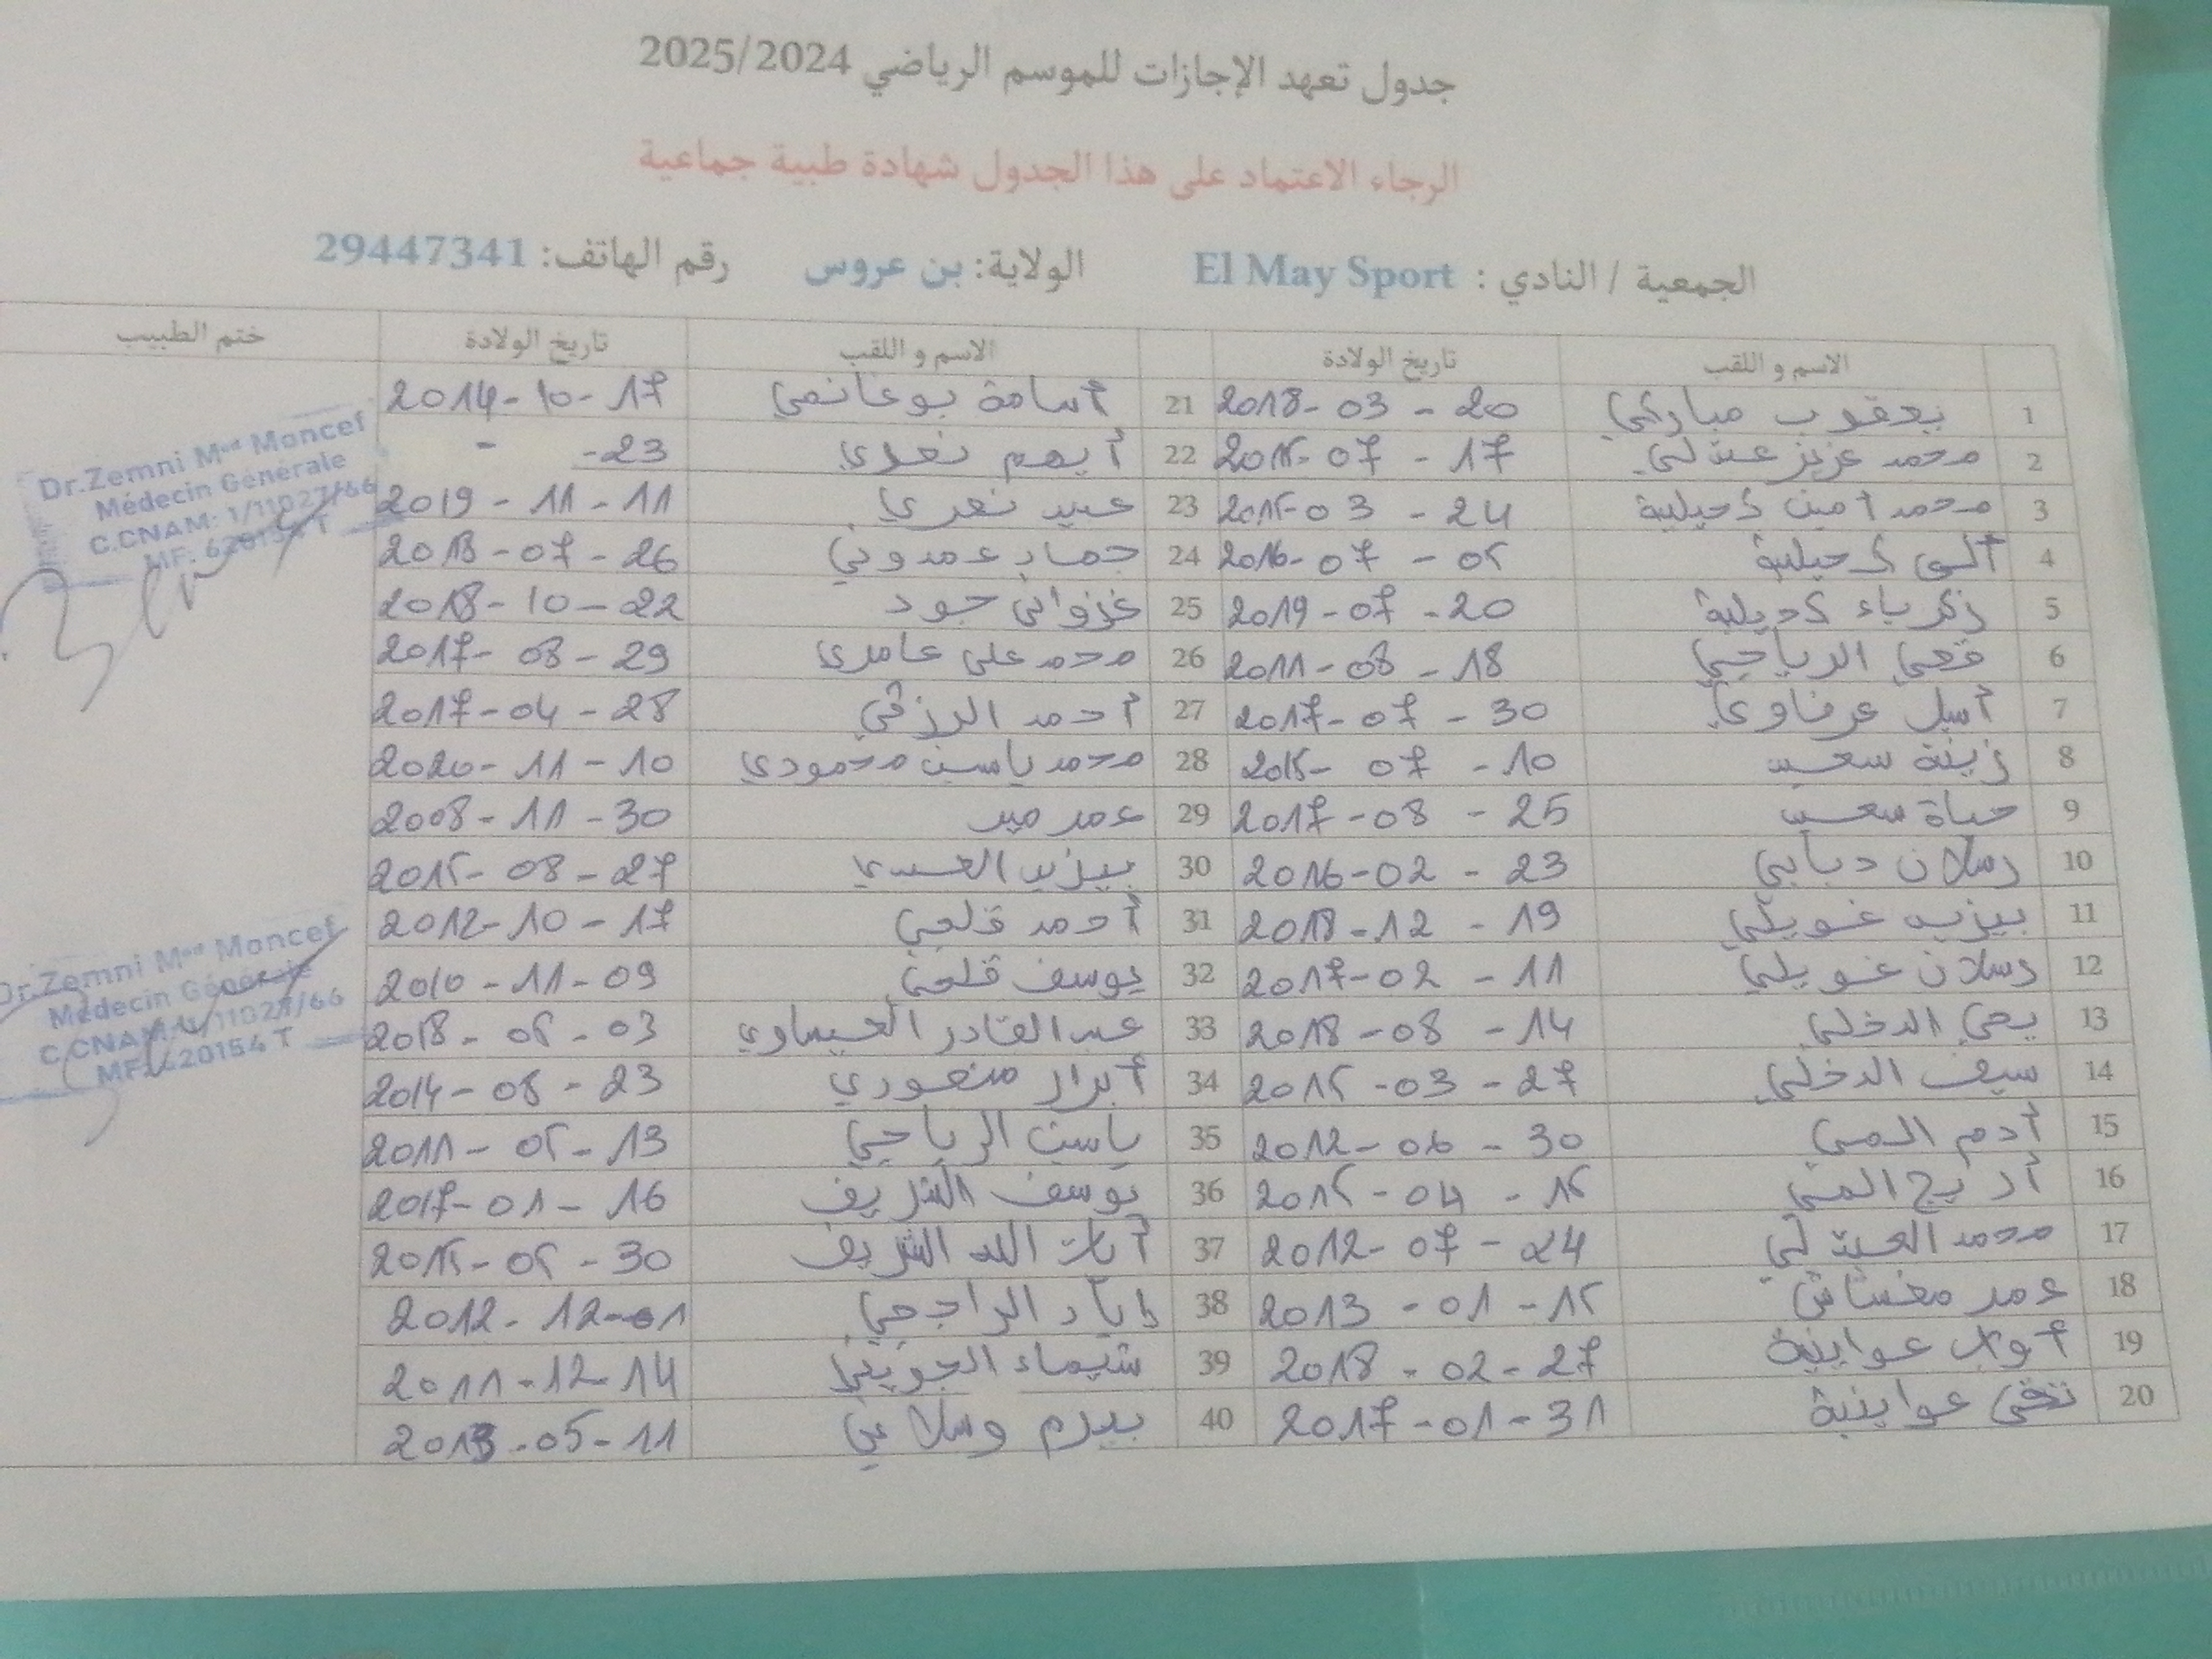 جدول تعهد الإجازات للموسم الرياضي 2025/2024
الرجاء الاعتماد على هذا الجدول شهادة طبية جماعية
الجمعية / النادي : El May Sport الولاية: بن عروس رقم الهاتف: 29447341
الاسم و اللقب تاريخ الولادة الاسم و اللقب تاريخ الولادة ختم الطبيب
1 يعقوب مباركي 20 - 03 - 2018 21 أسامة بوغانمي 17 - 10 - 2014
2 محمد عزيز 17 - 07 - 2015 22 أيهم نصري 23- -
3 محمد أمين كحيلية 24 - 03 - 2015 23 عبيد نصري 11 - 11 - 2019
4 كحيلية 05 - 07 - 2016 24 عمدوني 26 - 07 - 2013
5 زكرياء كحيلية 20 - 07 - 2019 25 غزواني جود 22 - 10 - 2018
6 قصي الرياحي 18 - 08 - 2011 26 محمد علي عامري 29 - 08 - 2017
7 أسيل عرفاوي 30 - 07 - 2017 27 أحمد الرزقي 28 - 04 - 2017
8 زينة 10 - 07 - 2015 28 محمد ياسين محمودي 10 - 11 - 2020
9 حياة 25 - 08 - 2017 29 عمر ميد 30 - 11 - 2008
10 رسلان دبابي 23 - 02 - 2016 30 بيزيد 27 - 08 - 2015
11 بيزيد غويلي 19 - 12 - 2018 31 أحمد قلعي 17 - 10 - 2012
12 رسلان غويلي 11 - 02 - 2017 32 يوسف قلعي 09 - 11 - 2010
13 يحي الدخلي 14 - 08 - 2018 33 عبد القادر العيساوي 03 - 05 - 2018
14 سيف الدخلي 27 - 03 - 2015 34 أبرار منصوري 23 - 08 - 2014
15 آدم 30 - 06 - 2012 35 ياسين الرياحي 13 - 05 - 2011
16 أريج 15 - 04 - 2015 36 يوسف الشريف 16 - 01 - 2017
17 محمد 24 - 07 - 2012 37 آيات الله الشريف 30 - 05 - 2015
18 عمر 15 - 01 - 2013 38 إياد الراجحي 01 - 12 - 2012
19 عواينية 27 - 02 - 2018 39 شيماء الجويني 14 - 12 - 2011
20 عواينية 31 - 01 - 2017 40 بيرم وسلاتي 11 - 05 - 2013
Dr.Zemni Med Moncef
Médecin Générale
C.CNAM: 1/11027/66
MF: 620154 T
Dr.Zemni Med Moncef
Médecin Générale
C.CNAM: 1/11027/66
MF: 620154 T